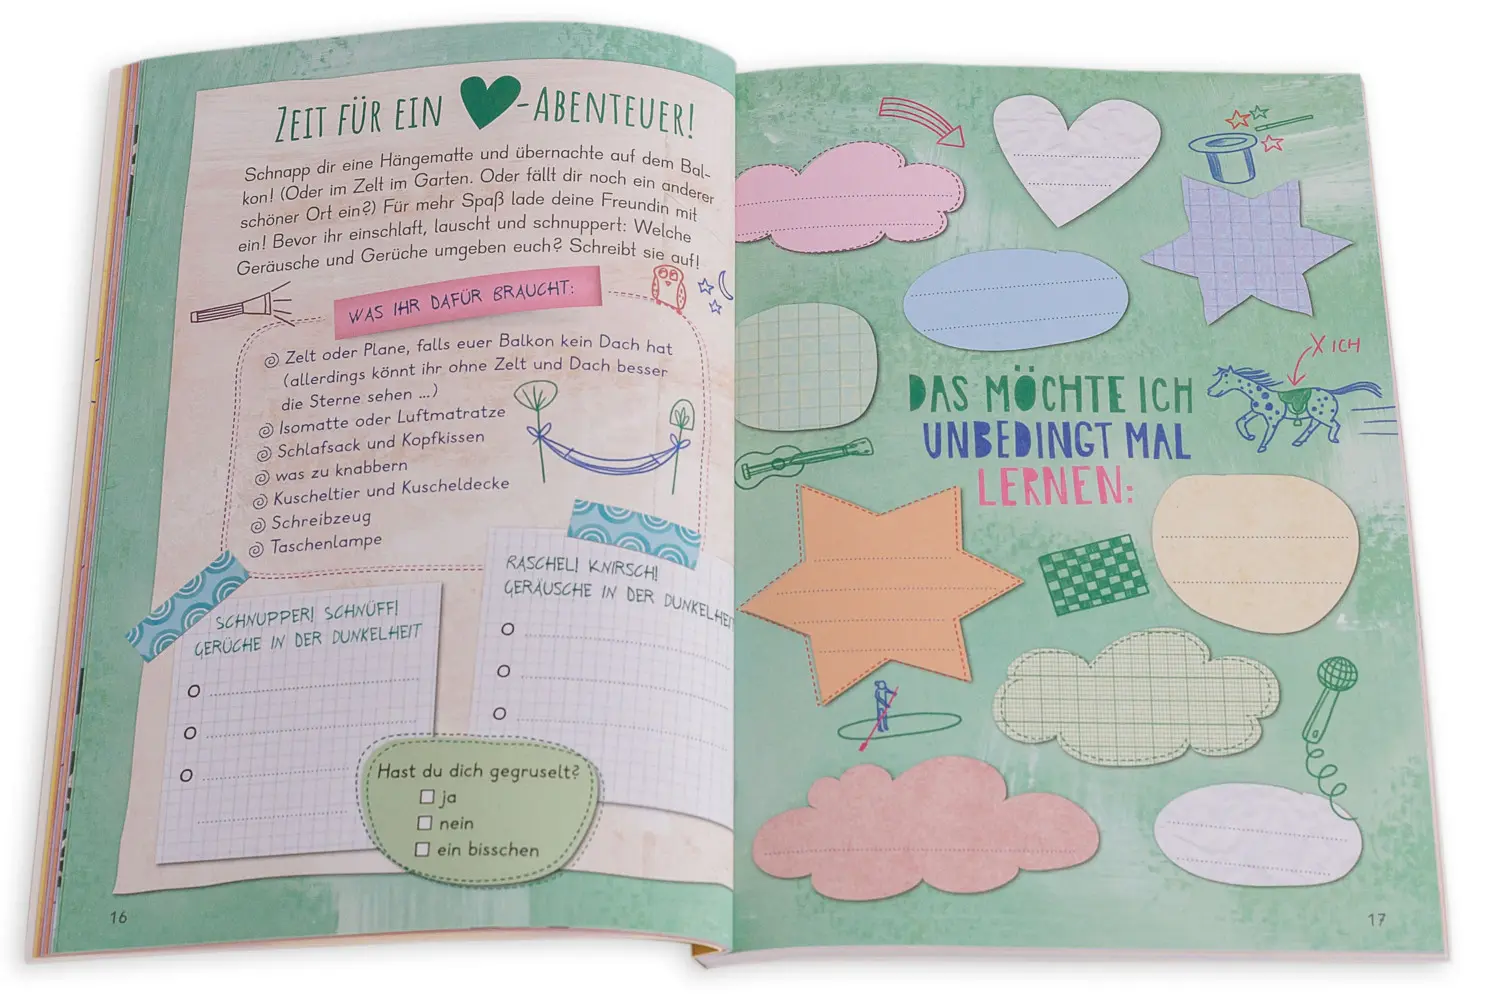 ZEIT FÜR EIN -ABENTEUER!
Schnapp dir eine Hängematte und übernachte auf dem Bal-
kon! (Oder im Zelt im Garten. Oder fällt dir noch ein anderer
schöner Ort ein?) Für mehr Spaß lade deine Freundin mit
ein! Bevor ihr einschlaft, lauscht und schnuppert: Welche
Geräusche und Gerüche umgeben euch? Schreibt sie auf!
WAS IHR DAFÜR BRAUCHT:
Zelt oder Plane, falls euer Balkon kein Dach hat
(allerdings könnt ihr ohne Zelt und Dach besser
die Sterne sehen ...)
Isomatte oder Luftmatratze
Schlafsack und Kopfkissen
was zu knabbern
Kuscheltier und Kuscheldecke
Schreibzeug
Taschenlampe
SCHNUPPER! SCHNÜFF!
GERÜCHE IN DER DUNKELHEIT
RASCHEL! KNIRSCH!
GERÄUSCHE IN DER DUNKELHEIT
Hast du dich gegruselt?
ja
nein
ein bisschen
16
X ICH
DAS MÖCHTE ICH
UNBEDINGT MAL
LERNEN:
17